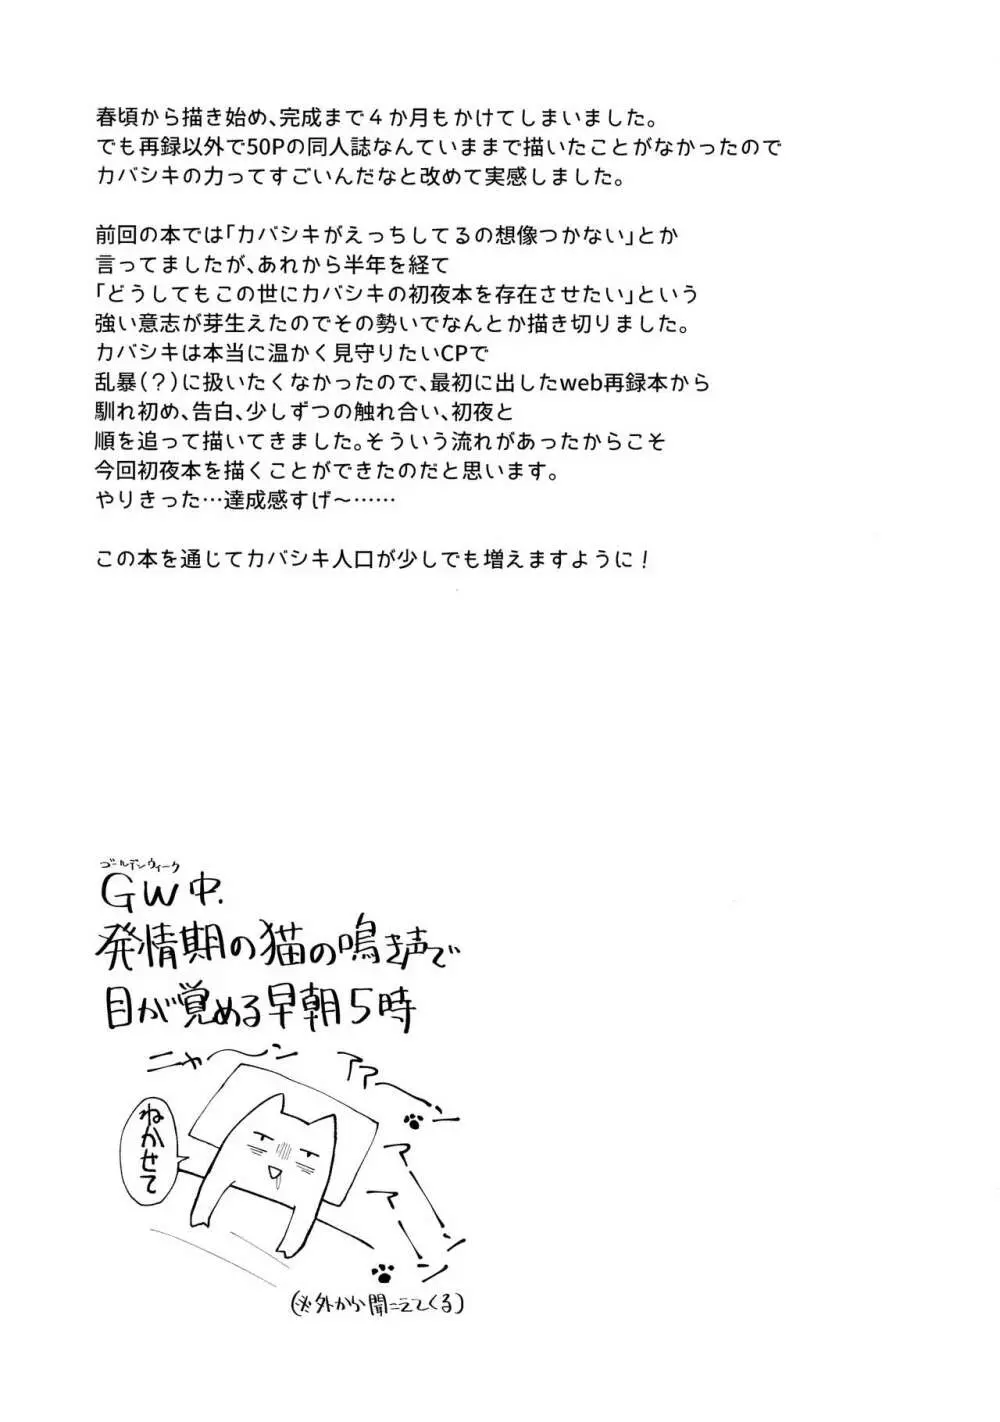 春頃から描き始め、完成まで４か月もかけてしまいました。
でも再録以外で50Pの同人誌なんていままで描いたことがなかったので
カバシキの力ってすごいんだなと改めて実感しました。
前回の本では「カバシキがえっちしてるの想像つかない」とか
言ってましたが、あれから半年を経て
「どうしてもこの世にカバシキの初夜本を存在させたい」という
強い意志が芽生えたのでその勢いでなんとか描き切りました。
カバシキは本当に温かく見守りたいCPで
乱暴（？）に扱いたくなかったので、最初に出したweb再録本から
馴れ初め、告白、少しずつの触れ合い、初夜と
順を追って描いてきました。そういう流れがあったからこそ
今回初夜本を描くことができたのだと思います。
やりきった…達成感すげ〜……
この本を通じてカバシキ人口が少しでも増えますように！
ゴールデンウィーク
GW中.
発情期の猫の鳴き声で
目が覚める早朝5時
ニャ〜ン
アァーン
アーン
アーン
ねかせて
(※外から聞こえてくる)